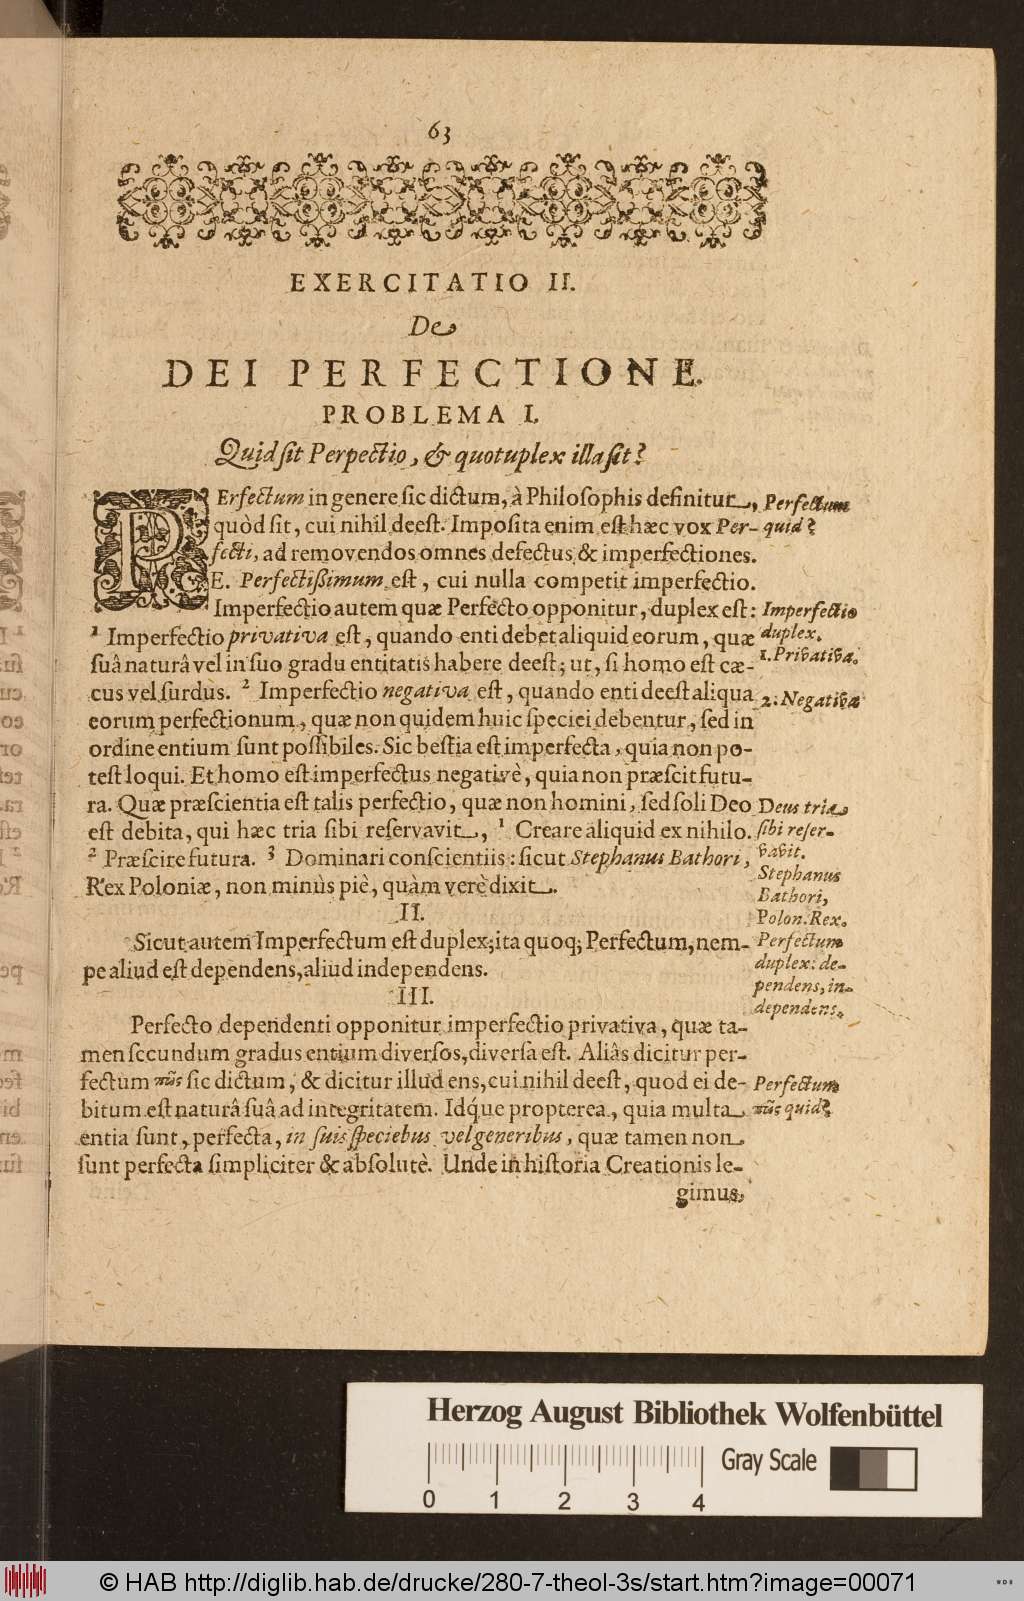 63
EXERCITATIO II.
De
DEI PERFECTIONE.
PROBLEMA I.
Quid ſit Perpectio, & quotuplex illa ſit?
PErfectum in genere ſic dictum, à Philoſophis definitur, Perfectum
quòd ſit, cui nihil deeſt. Impoſita enim eſt hæc vox Per- quid?
fecti, ad removendos omnes defectus & imperfectiones.
E. Perfectiſſimum eſt, cui nulla competit imperfectio.
Imperfectio autem quæ Perfecto opponitur, duplex eſt: Imperfectio
1 Imperfectio privativa eſt, quando enti debet aliquid eorum, quæ duplex.
ſuâ naturâ vel in ſuo gradu entitatis habere deeſt; ut, ſi homo eſt cæ- 1. Privativa.
cus vel ſurdus. 2 Imperfectio negativa eſt, quando enti deeſt aliqua 2. Negativa
eorum perfectionum, quæ non quidem huic ſpeciei debentur, ſed in
ordine entium ſunt poſſibiles. Sic beſtia eſt imperfecta, quia non po-
teſt loqui. Et homo eſt imperfectus negativè, quia non præſcit futu-
ra. Quæ præſcientia eſt talis perfectio, quæ non homini, ſed ſoli Deo Deus tria
eſt debita, qui hæc tria ſibi reſervavit, 1 Creare aliquid ex nihilo. ſibi reſer-
2 Præſcire futura. 3 Dominari conſcientiis: ſicut Stephanus Bathori, vavit.
Stephanus
Rex Poloniæ, non minùs piè, quàm verè dixit.
Bathori,
II.
Polon. Rex.
Sicut autem Imperfectum eſt duplex; ita quoq; Perfectum, nem- Perfectum
pe aliud eſt dependens, aliud independens.
duplex: de-
pendens, in-
III.
dependens.
Perfecto dependenti opponitur imperfectio privativa, quæ ta-
men ſecundum gradus entium diverſos, diverſa eſt. Aliâs dicitur per-
fectum πῶς ſic dictum, & dicitur illud ens, cui nihil deeſt, quod ei de- Perfectum
bitum eſt naturâ ſuâ ad integritatem. Idq́ue propterea, quia multa πῶς quid?
entia ſunt, perfecta, in ſuis ſpeciebus vel generibus, quæ tamen non
ſunt perfecta ſimpliciter & abſolutè. Unde in hiſtoria Creationis le-
gimus,
Herzog August Bibliothek Wolfenbüttel
Gray Scale
0 1 2 3 4
© HAB http://diglib.hab.de/drucke/280-7-theol-3s/start.htm?image=00071